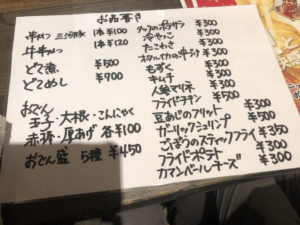 お品書き
串カツ 三河豚 1本 ¥100
牛串カツ 1本 ¥120
どて煮 ¥500
どてめし ¥900
おでん
玉子・大根・こんにゃく
赤棒・厚あげ 各¥100
おでん盛 5種 ¥450
タックのポテサラ ¥300
冷やっこ ¥300
たこわさ ¥300
ホタルイカの沖漬け ¥300
もずく ¥300
キムチ ¥300
人参マリネ ¥300
フライドチキン ¥500
豆あじのフリット ¥300
ガーリックシュリンプ ¥500
ごぼうのスティックフライ ¥350
フライドポテト ¥300
カマンベールチーズ ¥300